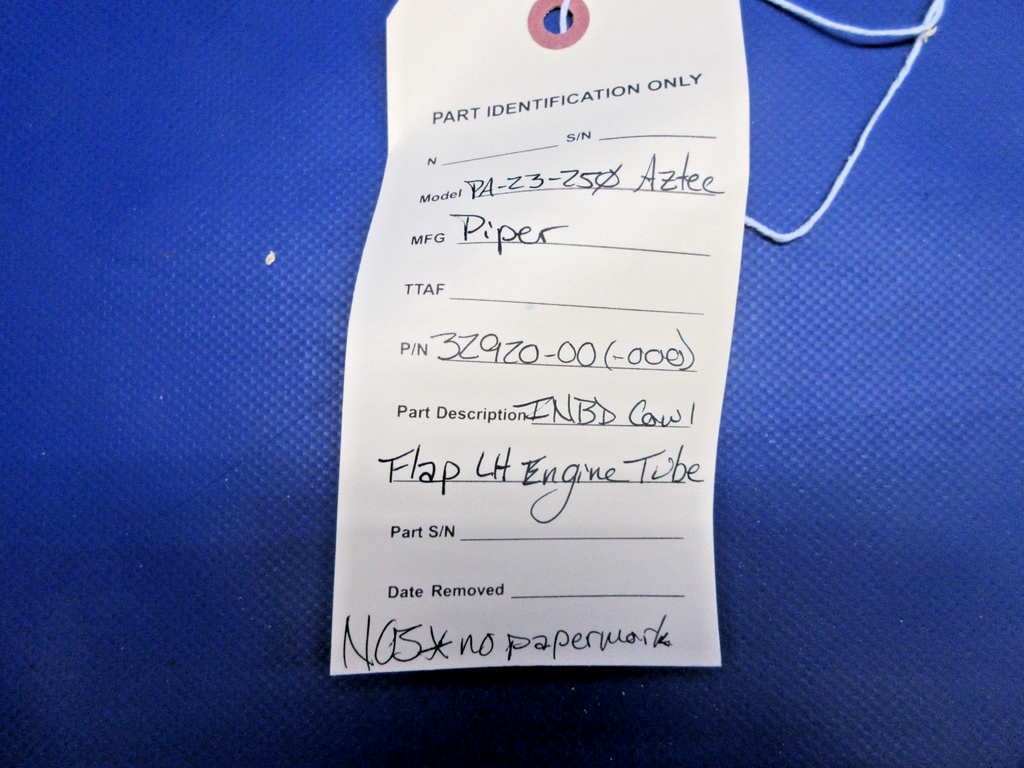 PART IDENTIFICATION ONLY
N S/N
Model PA-23-250 Aztec
MFG Piper
TTAF
P/N 32920-00 (-000)
Part Description INBD Cowl
Flap LH Engine Tube
Part S/N
Date Removed
NOS* no papermark